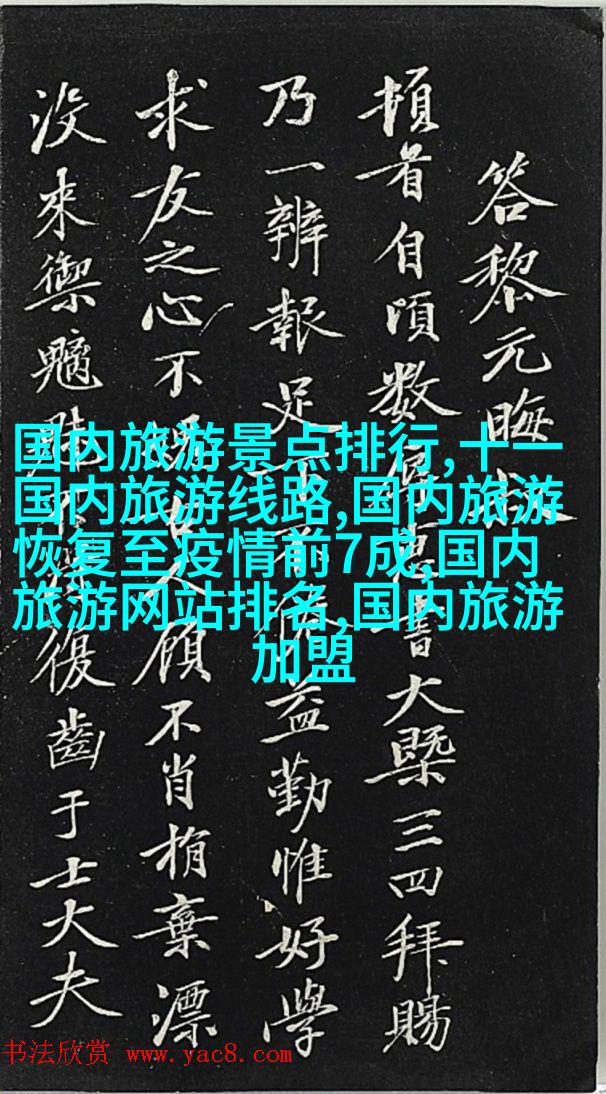 答黎元晦
頓首自頃數書大槩三四拜賜
乃一辨報足益勤惟好學
求友之心不顧不肖捐棄漂
没來禦魑復齒于士大夫
国内旅游景点排行,十一
国内旅游线路,国内旅游
恢复至疫情前7成,国内
旅游网站排名,国内旅游
加盟
书法欣赏 www.yac8.com